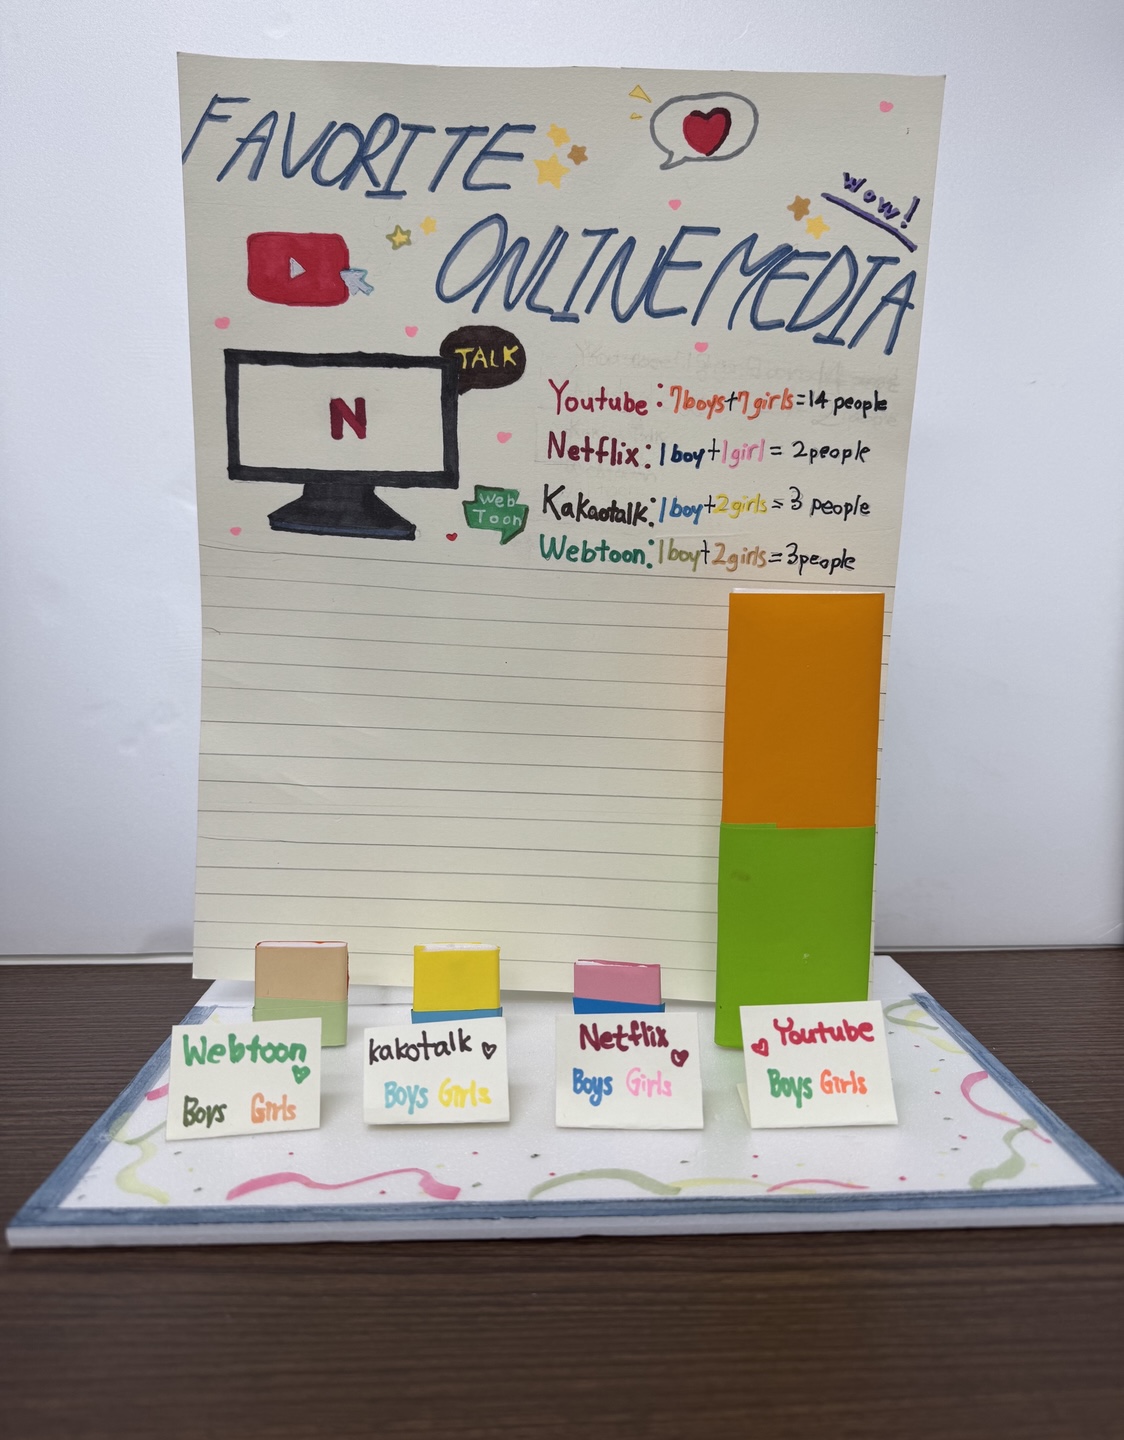 FAVORITE
wow!
ONLINE MEDIA
TALK
N
Youtube: 7boys+7girls=14 people
Netflix: 1boy+1girl= 2people
Web
Toon
Kakaotalk: 1boy+2girls= 3 people
Webtoon: 1boy+2girls=3people
Webtoon
Boys Girls
kakotalk
Boys Girls
Netflix
Boys Girls
Youtube
Boys Girls